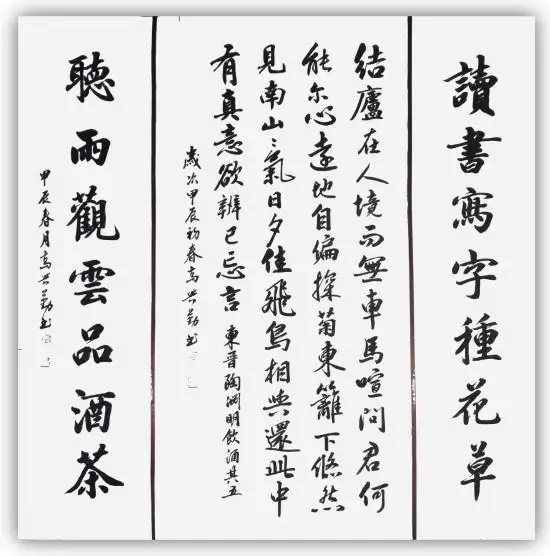 讀書寫字種花草
結廬在人境而無車馬喧問君何
能尔心遠地自偏採菊東籬下悠然
見南山〻氣日夕佳飛鳥相與還此中
有真意欲辨已忘言 東晉陶渊明飲酒其五
歲次甲辰初春高兴勤书
聽雨觀雲品酒茶
甲辰春月高兴勤书